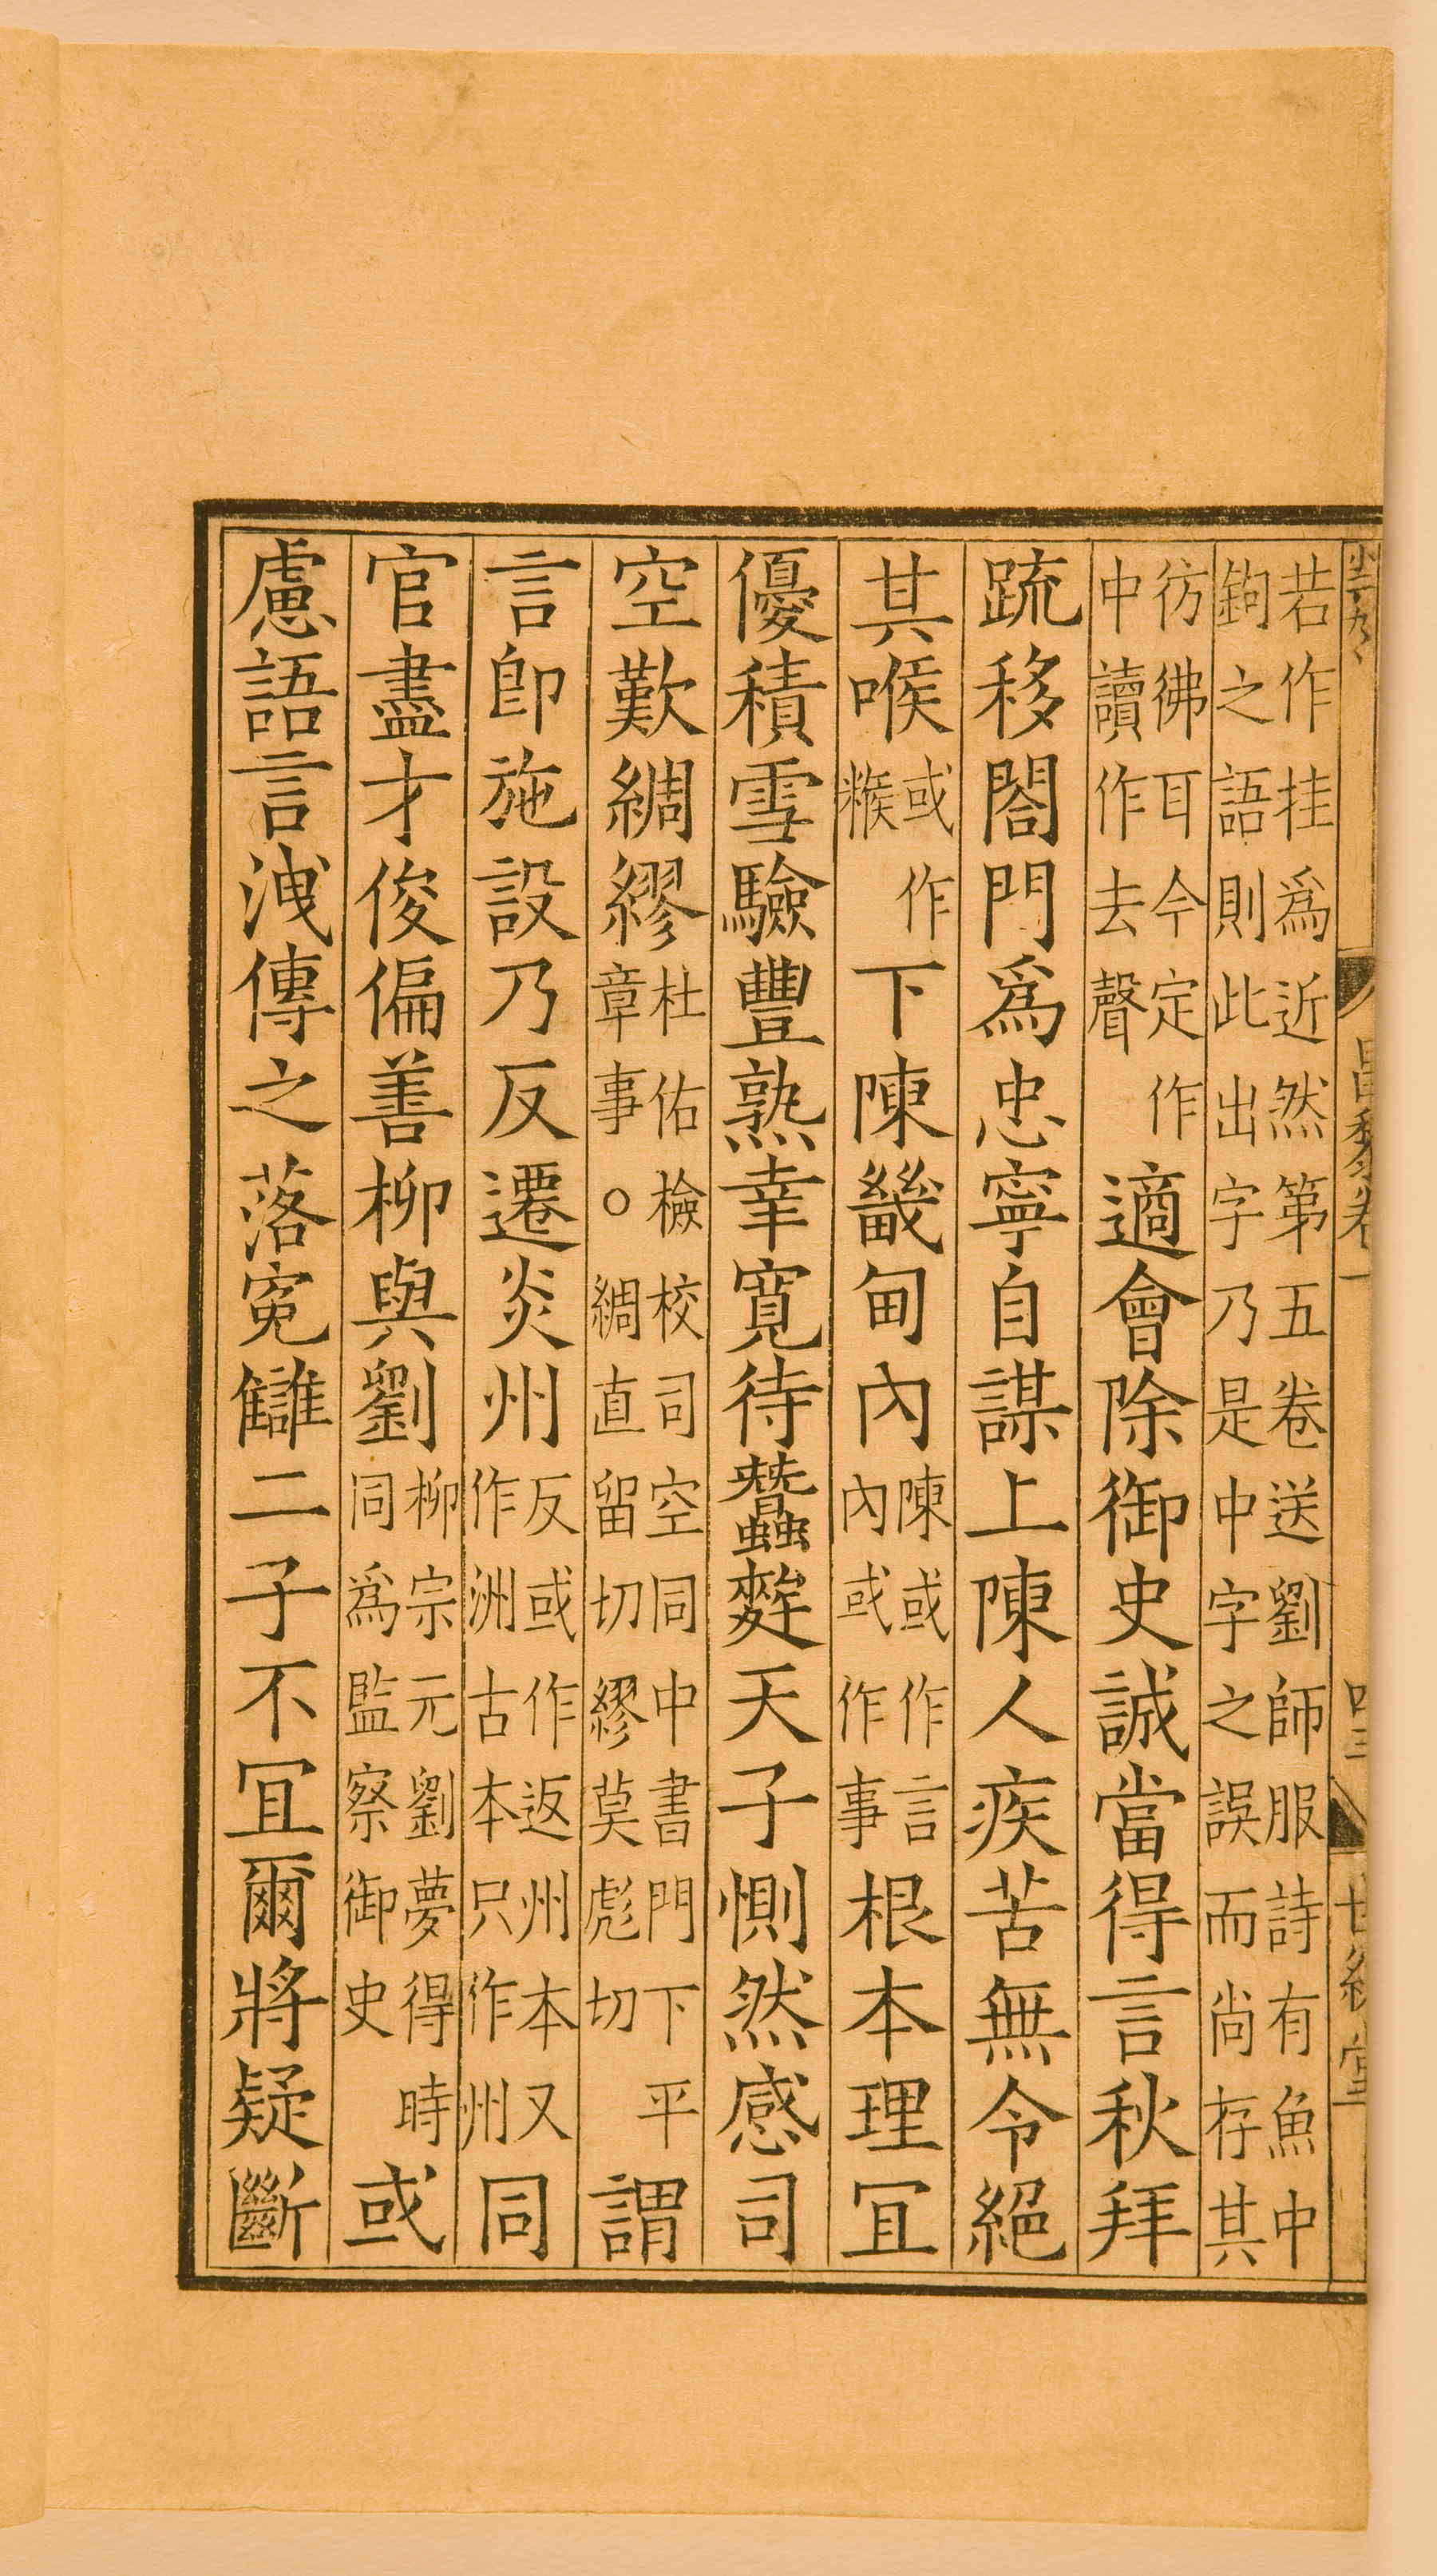 若作挂爲近然第五卷送劉師服詩有魚中
鉤之語則此出字乃是中字之誤而尚存其
彷彿耳今定作
中讀作去聲
適會除御史誠當得言秋拜
疏移閤門爲忠寧自謀上陳人疾苦無令絕
其喉
或作
糇
下陳畿甸內
陳或作言
內或作事
根本理宜
優積雪驗豐熟幸寬待蠶麰天子惻然感司
空歎綢繆
杜佑檢校司空同中書門下平
章事○綢直留切繆莫彪切
謂
言卽施設乃反遷炎州
反或作返州本又
作洲古本只作州
同
官盡才俊偏善柳與劉
柳宗元劉夢得時
同爲監察御史
或
慮語言洩傳之落寃讎二子不宜爾將疑斷